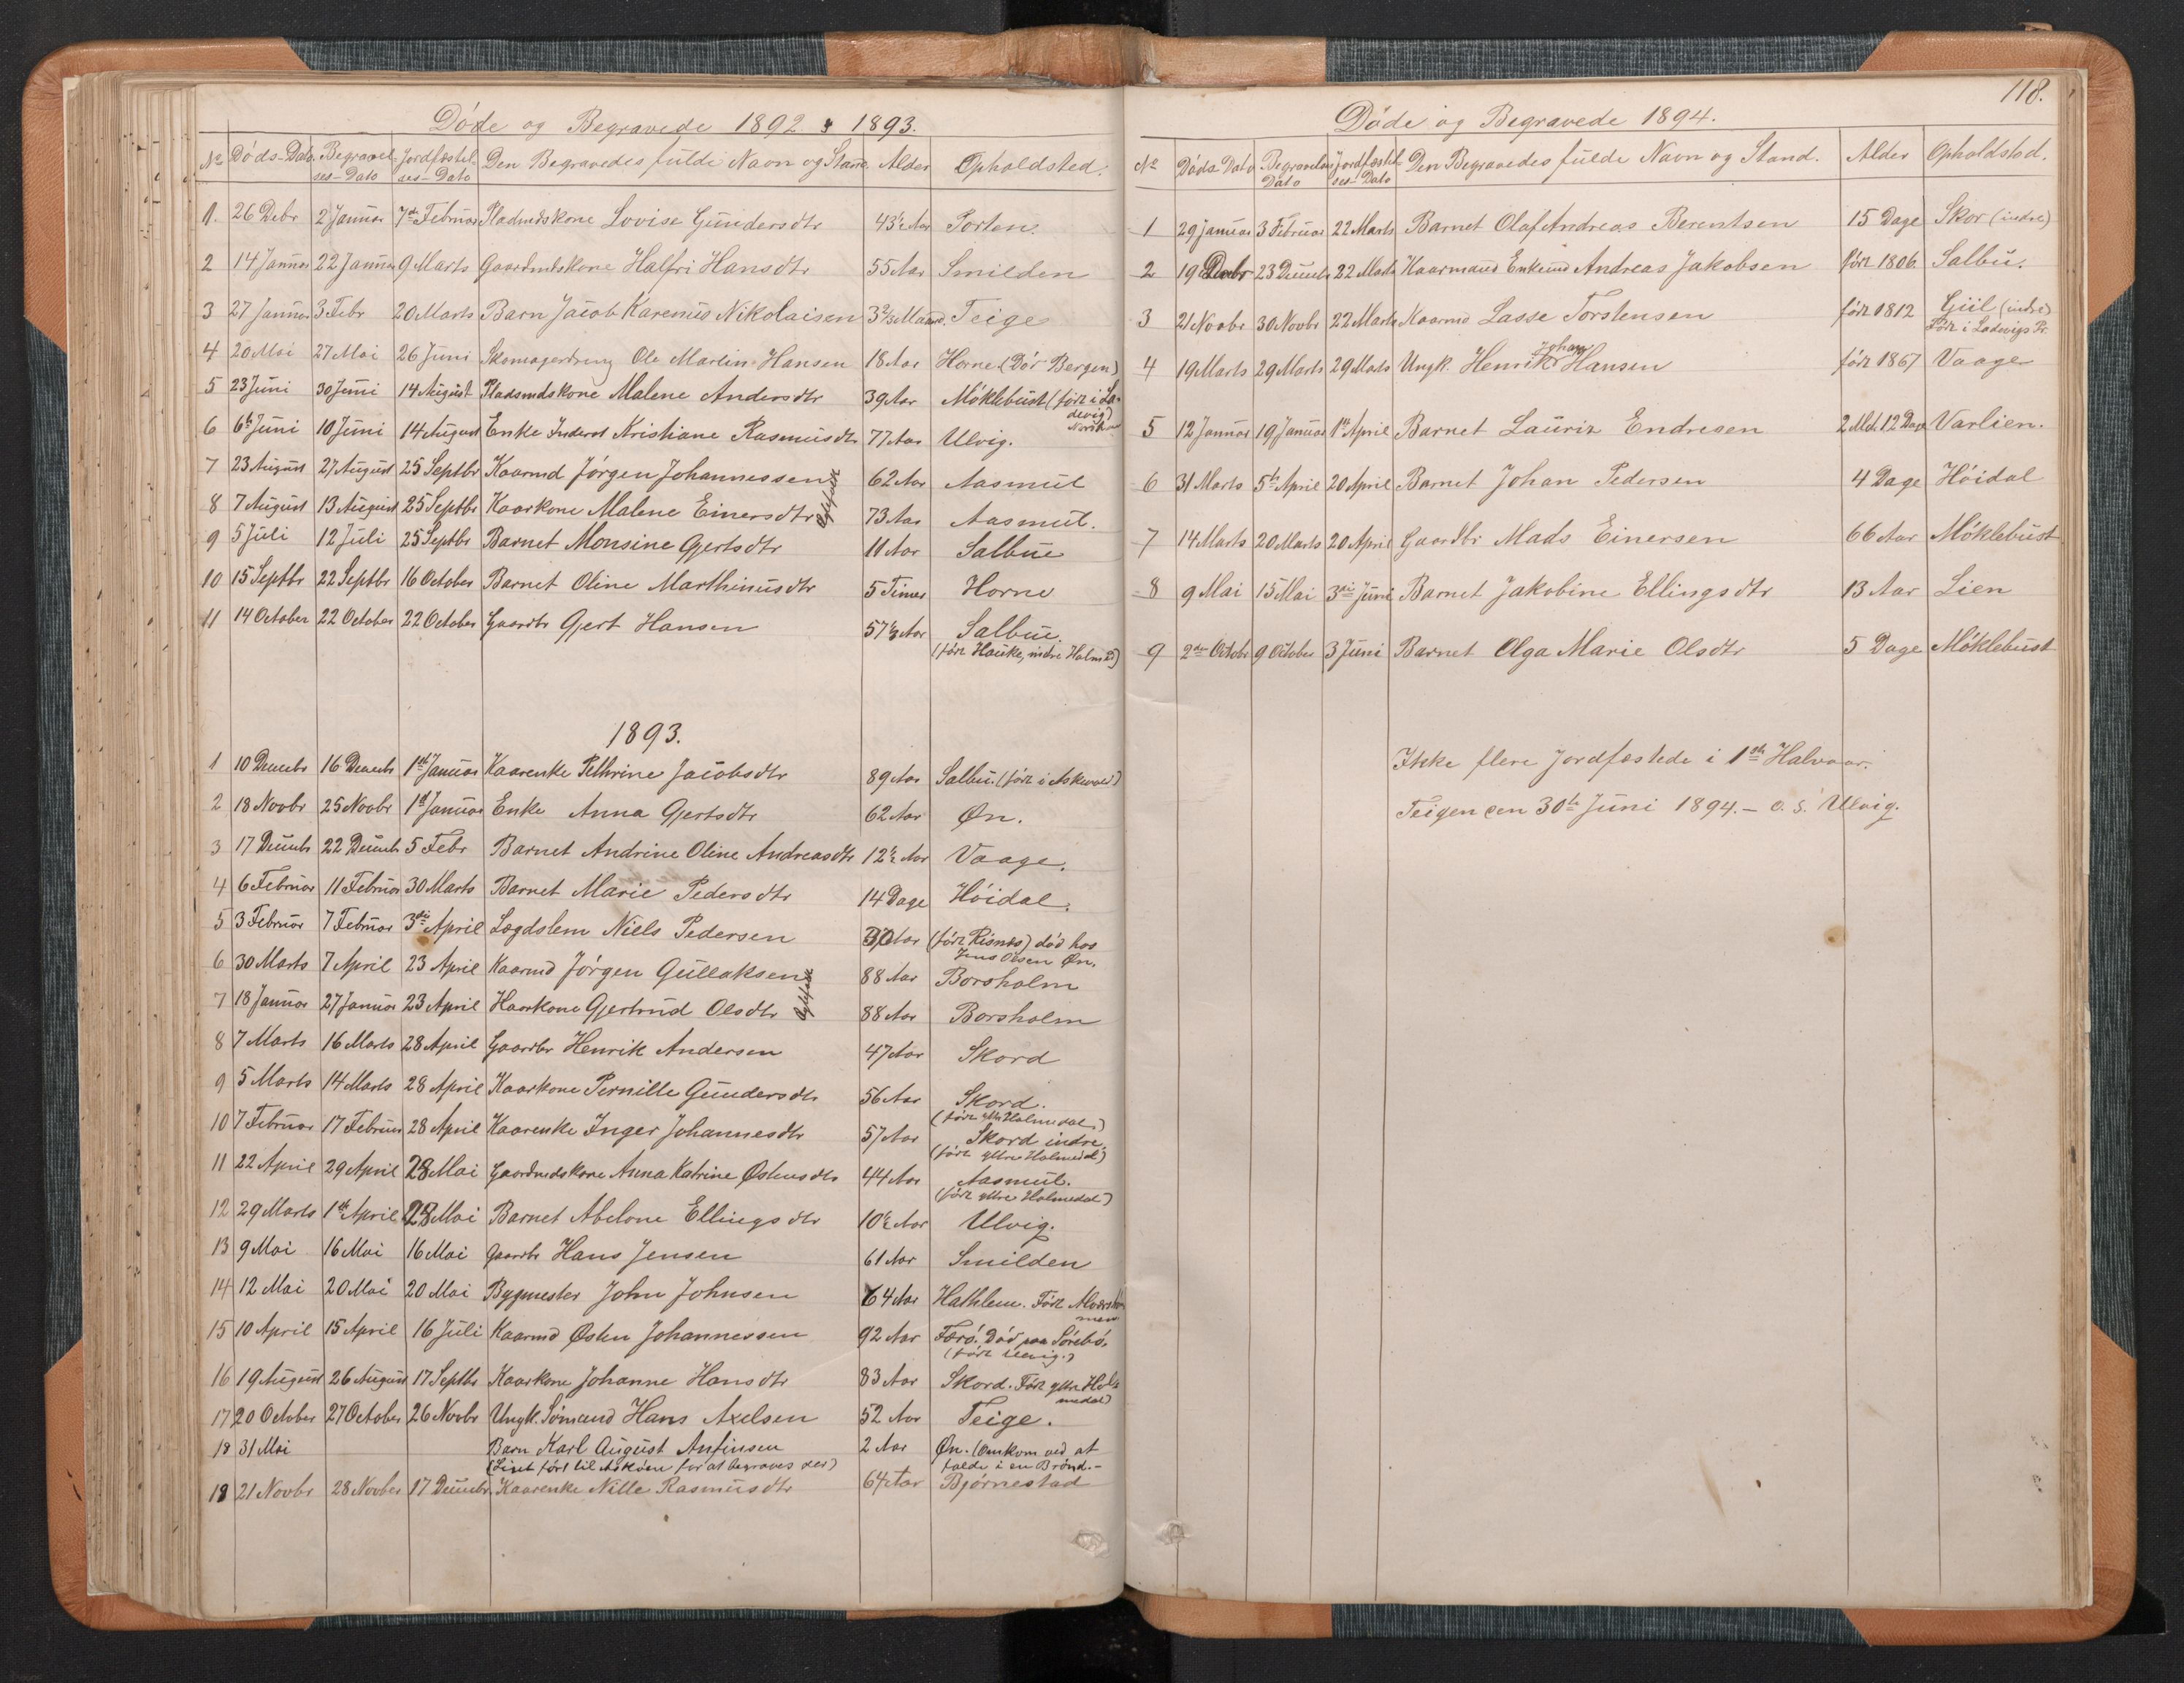 Døde og Begravede 1892 & 1893.
No Døds-Dato Begravelses-Dato Jordfæstelses-Dato Den Begravedes fulde Navn og Stand Alder Opholdsted.
1. 26 Debr 2 Januar 7de Februar Pladmdskone Lovise Gundersdtr 43½ Aar Torten.
2 14 Januar 22 Januar 9 Marts Gaardmdskone Halfri Hansdtr 55 Aar Smilden
3 27 Januar 3 Febr 20 Marts Barn Jacob Karenus Nikolaisen 3 2/3 Maaned. Teige
4 20 Mai 27 Mai 26 Juni Skomagerdreng Ole Martin Hansen 18 Aar Horne (Dør Bergen)
5 23 Juni 30 Juni 14 August Pladsmdskone Malene Andersdtr 39 Aar Møklebust (født i La-
devig)
6 6te Juni 10 Juni 14 August Enke Inderst Kristiane Rasmusdtr 77 Aar Ulvig.
7 23 August 27 August 25 Septbr Kaarmd Jørgen Johannessen 62 Aar Aasmul
8 7 August 13 August 25 Septbr Kaarkone Malene Einersdtr Egtefolk 73 Aar Aasmul.
9 5 Juli 12 Juli 25 Septbr Barnet Monsine Gjertsdtr 11 Aar Salbue
10 15 Septbr 22 Septbr 16 October Barnet Oline Marthinusdtr 5 Timer Horne
11 14 October 22 October 22 October Gaardbr Gjert Hansen 57 1/3 Aar Salbue
(født Hauke, indre Holmed)
1893.
1 10 Decembr 16 Decembr 1ste Januar Kaarenke Pethrine Jacobsdtr 89 Aar Salbu. (født i Askevold)
2 18 Novbr 25 Novbr 1st Januar Enke Anna Gjertsdtr 62 Aar Øn.
3 17 Decembr 22 Decembr 5 Febr Barnet Andrine Oline Andreasdtr 12½ Aar Vaage.
4 6 Februar 11 Februar 30 Marts Barnet Marie Pedersdtr 14 Dage Høidal.
5 3 Februar 7 Februar 3die April Lægdslem Niels Pedersen Aar (født Risnes) død hos
Jens Olsen Øn.
6 30 Marts 7 April 23 April Kaarmd Jørgen Gullaksen 88 Aar Borsholm
7 18 Januar 27 Januar 23 April Kaarkone Gjertrud Olsdtr Egtefolk 88 Aar Borsholm
8 7 Marts 16 Marts 28 April Gaardbr Henrik Andersen 47 Aar Skord
9 5 Marts 14 Marts 28 April Kaarkone Pernille Gundersdtr 56 Aar Skord.
(født ytr Holmedal.)
10 7 Februar 17 Februar 28 April Kaarenke Inger Johannesdtr 57 Aar Skord indre.
(født yttre Holmedal)
11 22 April 29 April 28 Mai Gaardmdskone Anna Katrine Østensdtr 44 Aar Aasmul.
(født yttre Holmedal)
12 29 Marts 1ste April 28 Mai Barnet Abelone Ellingsdtr 10½ Aar Ulvig.
13 9 Mai 16 Mai 16 Mai Gaardbr Hans Jensen 61 Aar Smilden
14 12 Mai 20 Mai 20 Mai Bygmester John Johnsen 64 Aar Hathlem. Født
15 10 April 15 April 16 Juli Kaarmd Østen Johannessen 92 Aar Færø. Død paa Sørebø.
(født Ulvig.)
16 19 August 26 August 17 Septbr Kaarkone Johanne Hansdtr 83 Aar Skord. Født yttre Hol-
medal)
17 20 October 27 October 26 Novbr Ungk. Sømand Hans Axelsen 52 Aar Teige.
18 31 Mai Barn Karl August Anfinsen 2 Aar Øn. (Omkom ved at
(Liget ført til Askøen for at begraves der) falde i en Brønd.-
19 21 Novbr 28 Novber 17 Decembr Kaarenke Nille Rasmusdtr 64 Aar Bjørnestad
118.
Døde og Begravede 1894.
No Døds Dato Begravelses Dato Jordfæstelses-Dato Den Begravedes fulde Navn og Stand. Alder Opholdsted.
1 29 Januar 3 Februar 22 Marts Barnet Olaf Andreas Berentsen 15 Dage Skor (indre)
2 19 Debr 23 Decembr 22 Marts Kaarmand Enkemd Andreas Jakobsen født 1806. Salbu.
3 21 Novbr 30 Novbr 22 Marts Kaarmd Lasse Torstensen født 1812 Giil (indre)
Født i Ladevigs Pr.
4 19 Marts 29 Marts 29 Marts Ungk. Henrik Johan Hansen født 1867 Vaage
5 12 Januar 19 Januar 1ste April Barnet Lauriz Endresen 2 Md. 12 Dage Varlien.
6 31 Marts 5te April 20 April Barnet Johan Pedersen 4 Dage Høidal
7 14 Marts 20 Marts 20 April Gaardbr Mads Einersen 66 Aar Møklebust
8 9 Mai 15 Mai 3die Juni Barnet Jakobine Ellingsdtr 13 Aar Lien
9 2den Octobr 9 October 3 Juni Barnet Olga Marie Olsdtr 5 Dage Møklebust
Ikke flere Jordfæstede i 1ste Halvaar.
Teigen den 30te Juni 1894. - O. S. Ulvig.